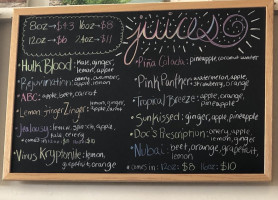 8oz → $
16oz → $8
12oz → $6
24oz → $11
juices
Hulk Blood: Kale, ginger,
lemon, apple
Rejuvenation:
lemon, apple
ABC: apple, beet, carrot
Lemon Ginger Zinger: lemon, ginger,
apple, carrot
lemon, spinach, apple,
Virus Kryptonite: lemon,
grapefruit, orange
Piña Colada: pineapple, coconut water
Pink Panther: watermelon, apple,
strawberry, orange
Tropical Breeze: apple, orange,
pineapple
Sunkissed: ginger, apple, pineapple
Doc's Prescription: celery, apple,
lemon, ginger
Nubai: beet, orange, grapefruit,
lemon
comes in: 12oz = $8 16oz = $10